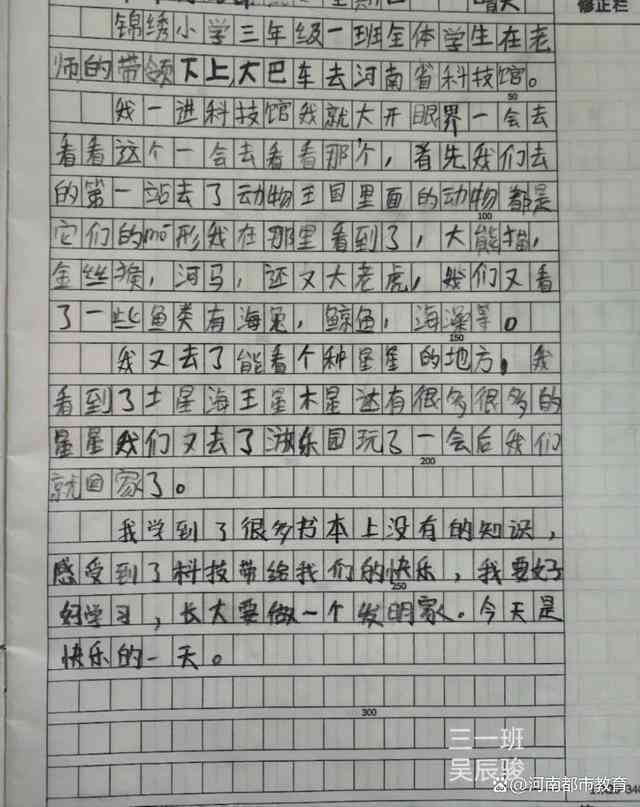 晴天
修正栏
锦绣小学三年级一班全体学生在老
师的带领下上,大巴车去河南省科技馆。
50
我一进科技馆我就大开眼界一会去
看看这个一会去看看那个,首先我们去
的第一站去了动物王国里面的动物都是
100
它们的mó形我在那里看到了,大熊猫,
金丝猴,河马,还又大老虎,我们又看
了一些鱼类有海兔,鲸鱼,海藻等。
150
我又去了能看个种星星的地方,我
看到了土星海王星木星还有很多很多的
星星我们又去了游乐园玩了一会后我们
200
就回家了。
我学到了很多书本上没有的知识,
感受到了科技带给我们的快乐,我要好
250
好学习,长大要做一个发明家。今天是
快乐的一天。
300
三一班
吴辰骏
河南都市教育